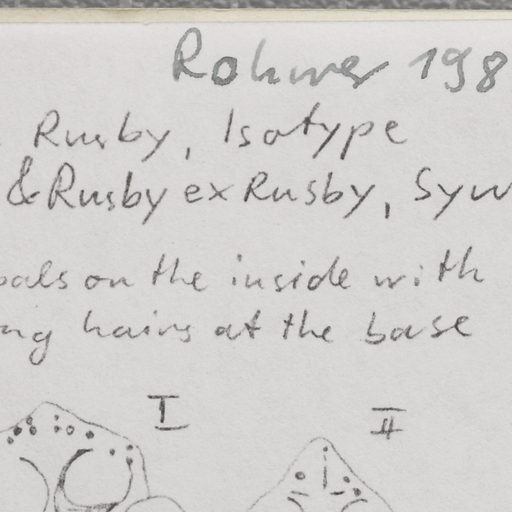 Rohwer 198
Rusby, Isotype
& Rusby ex Rusby, Syn
pals on the inside with
ng hairs at the base
I
II